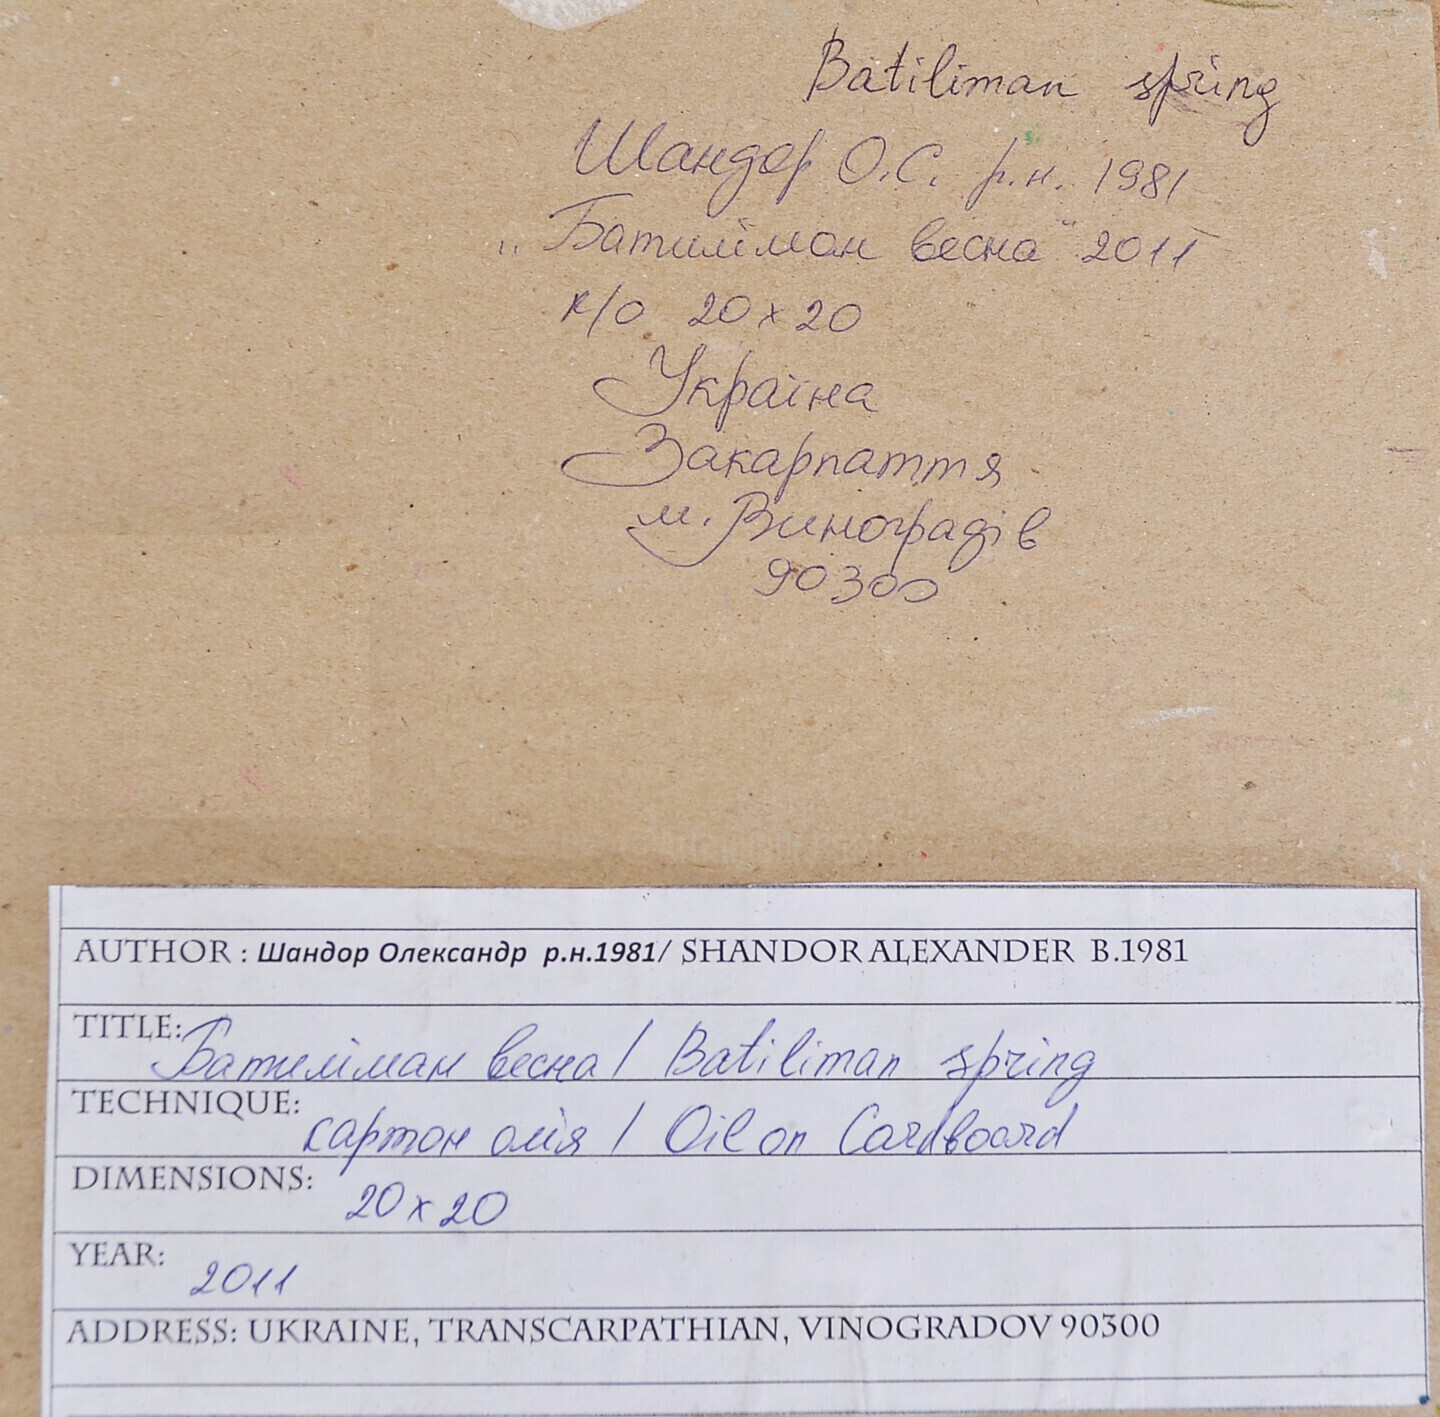 Batiliman spring
Шандор О.С. р.н. 1981
"Батиліман весна" 2011
к/о 20х20
Україна
Закарпаття
м. Виноградів
90300
AUTHOR : Шандор Олександр р.н.1981/ SHANDOR ALEXANDER B.1981
TITLE: Батиліман весна / Batiliman spring
TECHNIQUE: картон олія / Oil on Cardboard
DIMENSIONS: 20х20
YEAR: 2011
ADDRESS: UKRAINE, TRANSCARPATHIAN, VINOGRADOV 90300